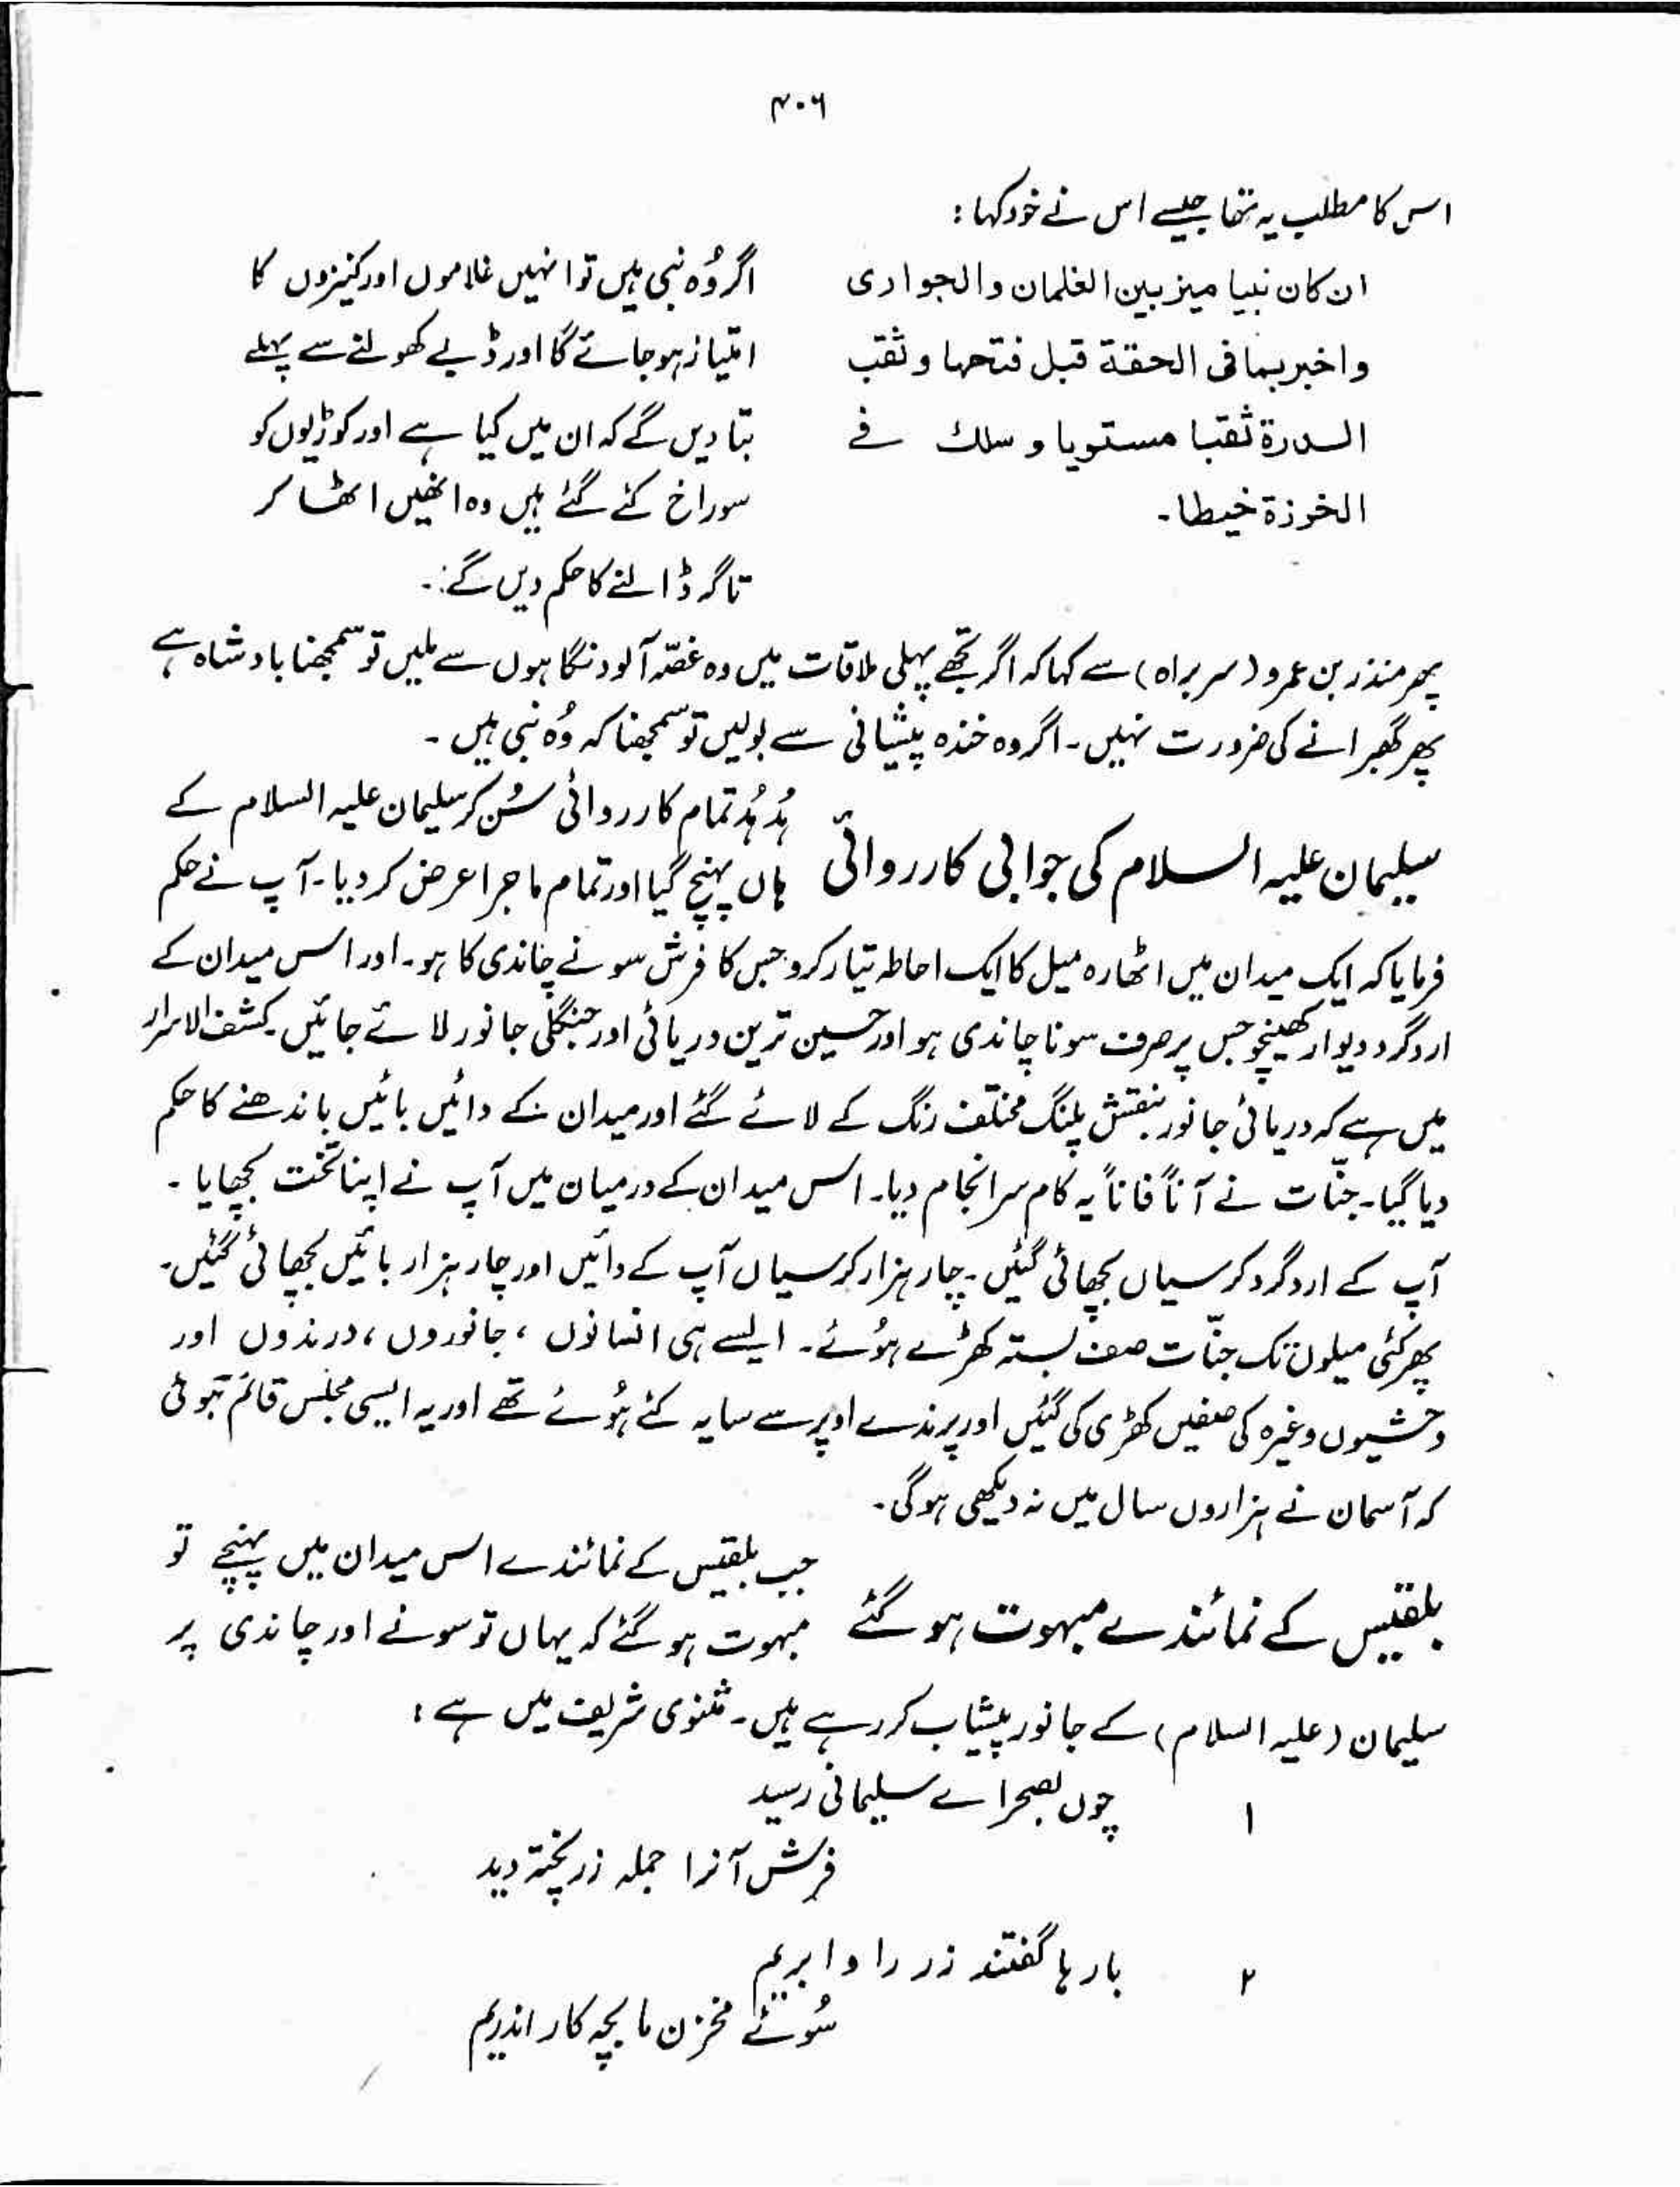 ۴۰۶
اس کا مطلب یہ تھا جیسے اس نے خود کہا :
ان کان نبیا میز بین الغلمان والجواری
واخبر بما فی الحقة قبل فتحها و ثقب
الدرة ثقبا مستویا و سلك فے
الخرزة خیطا۔
اگر وُہ نبی ہیں تو انہیں غلاموں اور کنیزوں کا
امتیاز ہو جائے گا اور ڈبے کھولنے سے پہلے
بتا دیں گے کہ ان میں کیا ہے اور کوڑیوں کو
سوراخ کئے گئے ہیں وہ انھیں اٹھا کر
تاگہ ڈالنے کا حکم دیں گے۔
پھر منذر بن عمرو (سربراہ) سے کہا کہ اگر تجھے پہلی ملاقات میں وہ غصّہ آلود نگاہوں سے ملیں تو سمجھنا بادشاہ ہے
پھر گھبرانے کی ضرورت نہیں۔ اگر وہ خندہ پیشانی سے بولیں تو سمجھنا کہ وُہ نبی ہیں۔
سلیمان علیہ السلام کی جوابی کارروائی
ہُدہُد تمام کارروائی سُن کر سلیمان علیہ السلام کے
ہاں پہنچ گیا اور تمام ماجرا عرض کر دیا۔ آپ نے حکم
فرمایا کہ ایک میدان میں اٹھارہ میل کا ایک احاطہ تیار کرو جس کا فرش سونے چاندی کا ہو۔ اور اس میدان کے
اردگرد دیوار کھینچو جس پر صرف سونا چاندی ہو اور حسین ترین دریائی اور جنگلی جانور لائے جائیں۔ کشف الاسرار
میں ہے کہ دریائی جانور بنقش پلنگ مختلف رنگ کے لائے گئے اور میدان کے دائیں بائیں باندھنے کا حکم
دیا گیا۔ جنّات نے آناً فاناً یہ کام سرانجام دیا۔ اس میدان کے درمیان میں آپ نے اپنا تخت بچھایا ۔
آپ کے اردگرد کرسیاں بچھائی گئیں۔ چار ہزار کرسیاں آپ کے دائیں اور چار ہزار بائیں بچھائی گئیں۔
پھر کئی میلوں تک جنّات صف بستہ کھڑے ہُوئے۔ ایسے ہی انسانوں ، جانوروں ، درندوں اور
وحشیوں وغیرہ کی صفیں کھڑی کی گئیں اور پرندے اوپر سے سایہ کئے ہُوئے تھے اور یہ ایسی مجلس قائم ہُوئی
کہ آسمان نے ہزاروں سال میں نہ دیکھی ہو گی۔
بلقیس کے نمائندے مبہوت ہو گئے
جب بلقیس کے نمائندے اس میدان میں پہنچے تو
مبہوت ہو گئے کہ یہاں تو سونے اور چاندی پر
سلیمان (علیہ السلام) کے جانور پیشاب کر رہے ہیں۔ مثنوی شریف میں ہے :
۱ چوں بصحرائے سلیمانی رسید
فرش آنرا جملہ زر پختہ دید
۲ بارہا گفتند زر را وا بریم
سُوئے مخزن ما بچہ کار اندریم